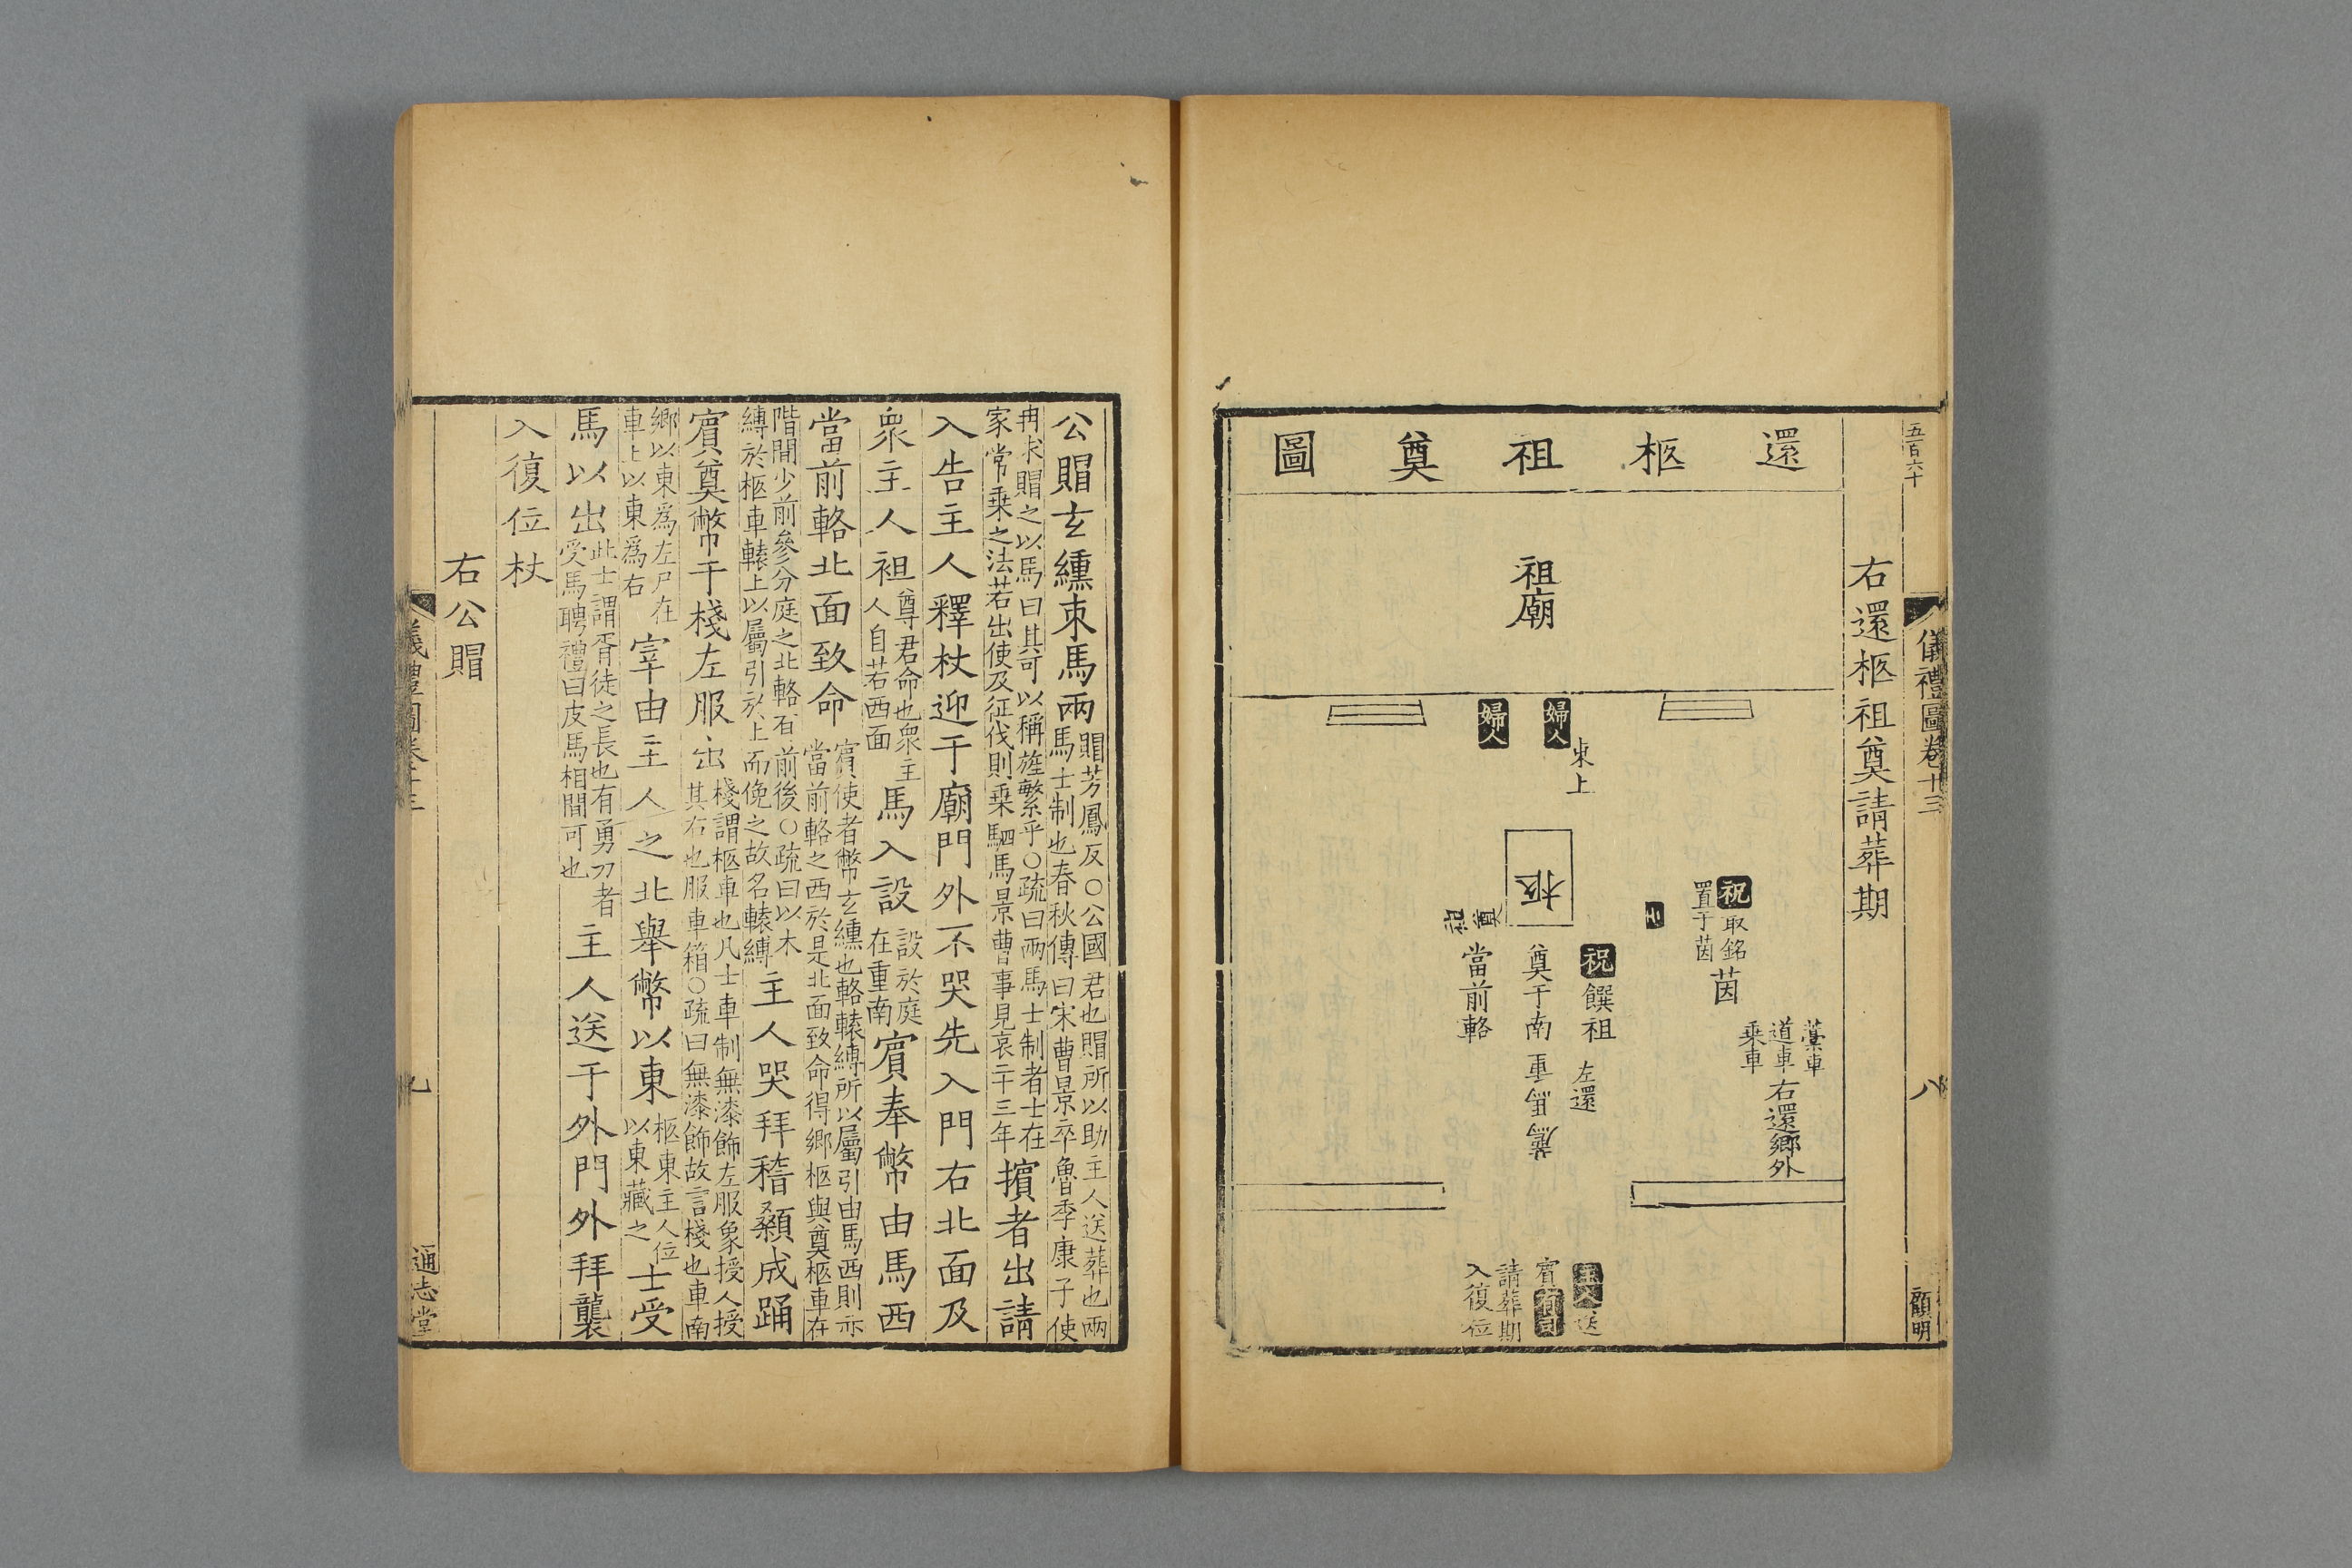 五百六十
儀禮圖卷十三
八
顧明
右還柩祖奠請葬期
還柩祖奠圖
祖廟
婦人
婦人
東上
柩
祝取銘
置于茵
茵
藁車
道車
乘車
右還鄉外
主
祝饌祖
左還
奠于南
重
馬
當前輅
主人送
賓有司
請葬期
入復位
公賵玄纁束馬兩
賵芳鳳反○公國君也賵所以助主人送葬也兩
馬士制也春秋傳曰宋曹景卒魯季康子使
冉求賵之以馬曰其可以稱旌繁乎○疏曰兩馬士制者士在
家常乘之法若出使及征伐則乘駟馬景曹事見哀二十三年
擯者出請
入告主人釋杖迎于廟門外不哭先入門右北面及
衆主人袒
尊君命也衆主
人自若西面
馬入設
設於庭
在重南
賓奉幣由馬西
當前輅北面致命
賓使者幣玄纁也輅轅縛所以屬引由馬西則亦
當前輅之西於是北面致命得鄉柩與奠柩車在
階間少前參分庭之北輅有前後○疏曰以木
縛於柩車轅上以屬引於上而俛之故名轅縛
主人哭拜稽顙成踊
賓奠幣于棧左服出
棧謂柩車也凡士車制無漆飾左服象授人授
其右也服車箱○疏曰無漆飾故言棧也車南
鄉以東為左尸在
車上以東為右
宰由主人之北舉幣以東
柩東主人位
以東藏之
士受
馬以出
此士謂胥徒之長也有勇力者
受馬聘禮曰皮馬相間可也
主人送于外門外拜襲
入復位杖
右公賵
儀禮圖卷十三
九
通志堂